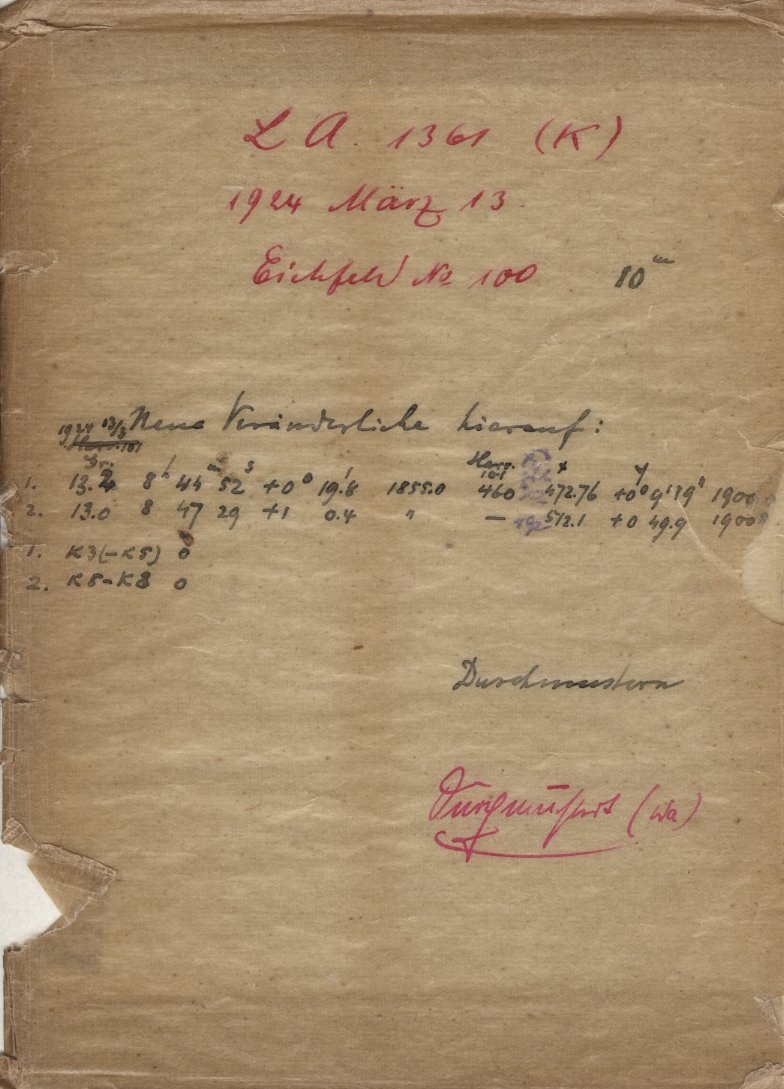 L A. 1361 (K)
1924 März 13.
Eichfeld No 100 10ᵐ
Neue Veränderliche hierauf:
1924 13/3
Gr. Harv. 101 x y
1. 13.2 8ʰ 44ᵐ 52ˢ +0° 19.'8 1855.0 460 472.76 +0° 9' 19" 1900
2. 13.0 8 47 29 +1 0.4 " — 512.1 +0 49.9 1900
1. K3(–K5) 0
2. K5–K8 0
Durchmustern
Durchmustert (Wa)